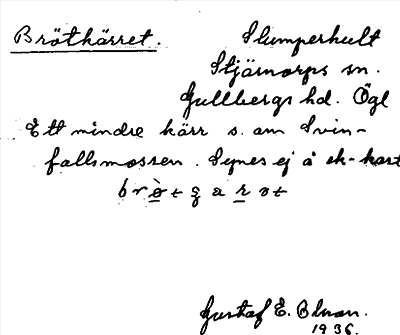 Brötkärret.
Slumperhult
Stjärnorps sn.
Gullbergs hd. Ögl
Ett mindre kärr s. om Svin-
fallsmossen. Synes ej å ek-kart
Gustaf E. Blman.
1936.